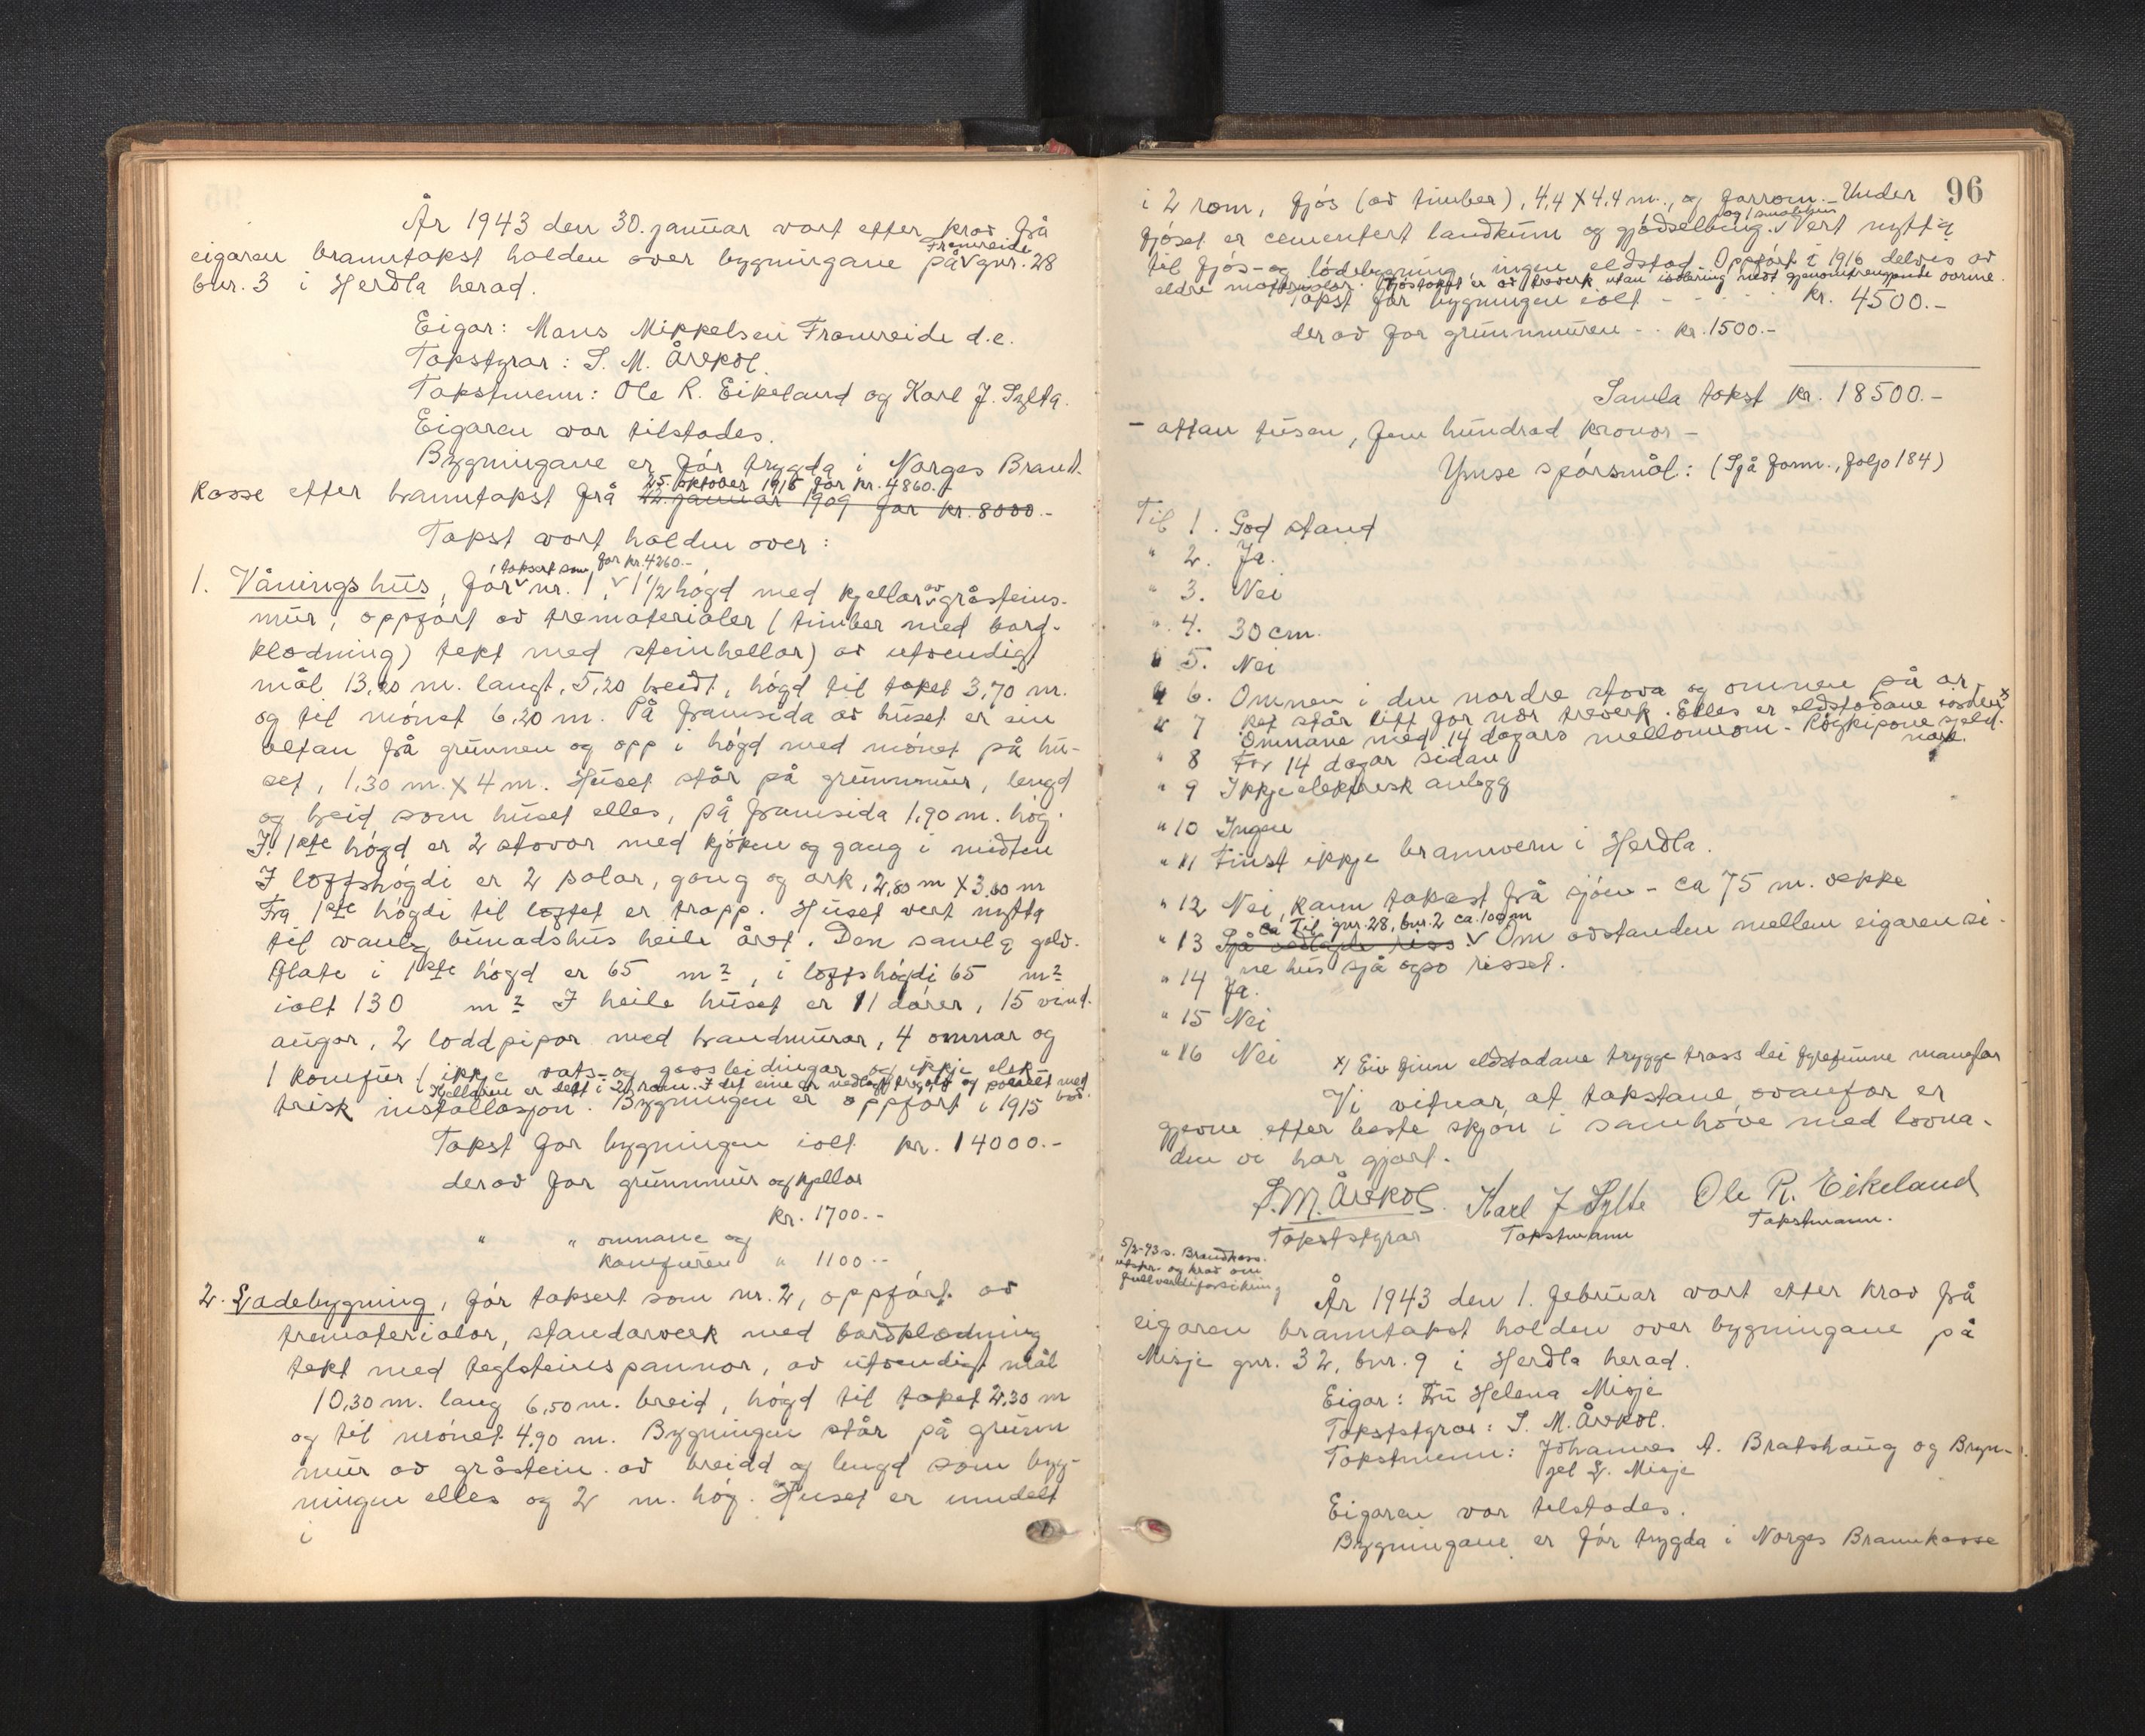 År 1943 den 30. januar vart etter krav frå
eigaren branntakst halden over bygningane på Framreide gnr. 28
bnr. 3 i Herdla herad.
Eigar: Mons Mikkelsen Framreide d.e.
Takstyrar: S. M. Åvekol.
Takstmenn: Ole R. Eikeland og Karl J. Sylta.
Eigaren var tilstades.
Bygningane er før trygda i Norges Brand-
kasse etter branntakst frå 25. oktober 1915 for kr. 4860.-
22. januar 1909 for kr. 8000.-
Takst vart halden over:
1. Våningshus, før taksert som nr. 1, for kr. 4260.- 1 1/2 høgd med kjellar av gråsteins-
mur, oppført av trematerialer (timber med bord-
klædning) tekt med steinhellar) av utvendigt
mål 13,20 m. langt, 5,20 breidt, høgd til taket 3,70 m.
og til mønet 6,20 m. På framsida av huset er ein
altan frå grunnen og opp i høgd med mønet på hu-
set, 1,30 m. x 4 m. Huset står på grunnmur, lengd
og breid som huset elles, på framsida 1,90 m. høg.
I 1ste høgd er 2 stovor med kjøken og gang i midten
I loftshøgdi er 2 salar, gang og ark, 2,80 m x 3,00 m
Fra 1ste høgdi til loftet er trapp. Huset vert nytta
til vanleg bunadshus heile året. Den samla golv-
flate i 1ste høgd er 65 m2, i loftshøgdi 65 m2
ialt 130 m2 I heile huset er 11 dører, 15 vind-
augor, 2 loddpipor med brandmurar, 4 omnar og
1 komfur (ikkje vats- og gassleidningar og ikkje elek-
Kjellaren er delt i 2 rom. I det eine er nedlagt tregolv og panelt med bord.
trisk installasjon. Bygningen er oppført i 1915
Takst for bygningen ialt kr. 14000.-
derav for grunnmur og kjellar
kr. 1700.-
" " omnane og
komfuren " 1100.-
2. Ladebygning, før taksert som nr. 2, oppført av
trematerialar, standarverk med bordklædning
tekt med teglsteinspannor, av utvendigt mål
10,30 m. lang 6,50 m. breid, høgd til taket 2,30 m
og til mønet 4,90 m. Bygningen står på grunn
mur av gråstein av breidd og lengd som byg-
ningen elles og 2 m. høg. Huset er inndelt
i
96
i 2 rom, fjøs (av timber), 4,4 x 4,4 m., og forrom. Under
fjøset er cementert landkum og gjødselbing. og smalehus Vert nytta
til fjøs- og lødebygning, ingen eldstad. Oppført i 1916 delvis av
eldre materialer. Fjøstaket er av treverk utan isolering mot gjenomtrengande varme.
Takst for bygningen ialt - - - kr. 4500.-
derav for grunnmuren - - kr. 1500.-
Samla takst kr. 18500.-
- attan tusen, fem hundrad kronor -
Ymse spørsmål: (Sjå form., foljo 184)
Til 1. God stand
" 2. Ja.
" 3. Nei
" 4. 30 cm.
" 5. Nei
" 6. Omnen i den nordre stova og omnen på ar-
ket står litt for nær treverk. Elles er eldstadane i orden x
" 7 Omnane med 14 dagars mellomrom - Røykpipone sjeld-
nare.
" 8 For 14 dagar sidan
" 9 Ikkje elektrisk anlegg
" 10 Ingen
" 11 Finst ikkje brannvern i Herdla.
" 12 Nei, kann takast frå sjøen - ca 75 m. vekke
" 13 Sjå vedlagde riss. Ca Til gnr. 28, bnr. 2 ca. 100 m Om avstanden mellem eigaren si-
ne hus sjå også risset.
" 14 Ja.
" 15 Nei
" 16 Nei
x) Ein finn eldstadane trygge trass dei fyrenemne manglar
Vi vitnar, at takstane ovanfor er
gjevne etter beste skjøn i samhøve med lovna-
den vi har gjort.
S. M. Åvekol. Karl J Sylte Ole R. Eikeland
Takststyrar Takstmann Takstmann.
5/2-43 s. Brandkass.
utskr. og krav om
fullverdiforsikring
År 1943 den 1. februar vart etter krav frå
eigaren branntakst halden over bygningane på
Misje gnr. 32, bnr. 9 i Herdla herad.
Eigar: Fru Helena Misje
Takststyrar: S. M. Åvekol.
Takstmenn: Johannes A. Bratshaug og Bryn-
jel L. Misje
Eigaren var tilstades.
Bygningane er før trygda i Norges Brannkasse